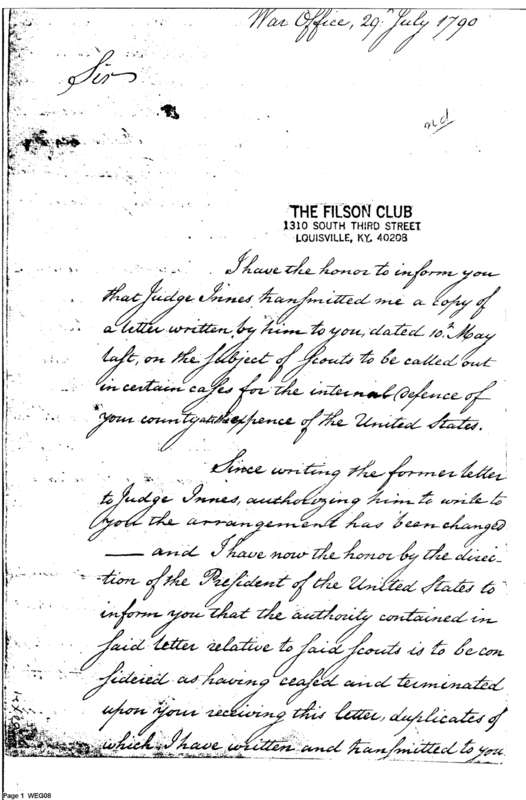 War Office, 29th July 1790
Sir
THE FILSON CLUB
1310 SOUTH THIRD STREET
LOUISVILLE, KY. 40208
I have the honor to inform you
that Judge Innes transmitted me a copy of
a letter written by him to you, dated 10th May
last, on the subject of Scouts to be called out
in certain cases for the internal Defence of
your county at the expence of the United States.
Since writing the former letter
to Judge Innes, authorizing him to write to
you the arrangement has been changed
— and I have now the honor by the direc-
tion of the President of the United States to
inform you that the authority contained in
said letter relative to said Scouts is to be con
sidered as having ceased and terminated
upon your receiving this letter, duplicates of
which I have written and transmitted to you
Page 1 WEG08